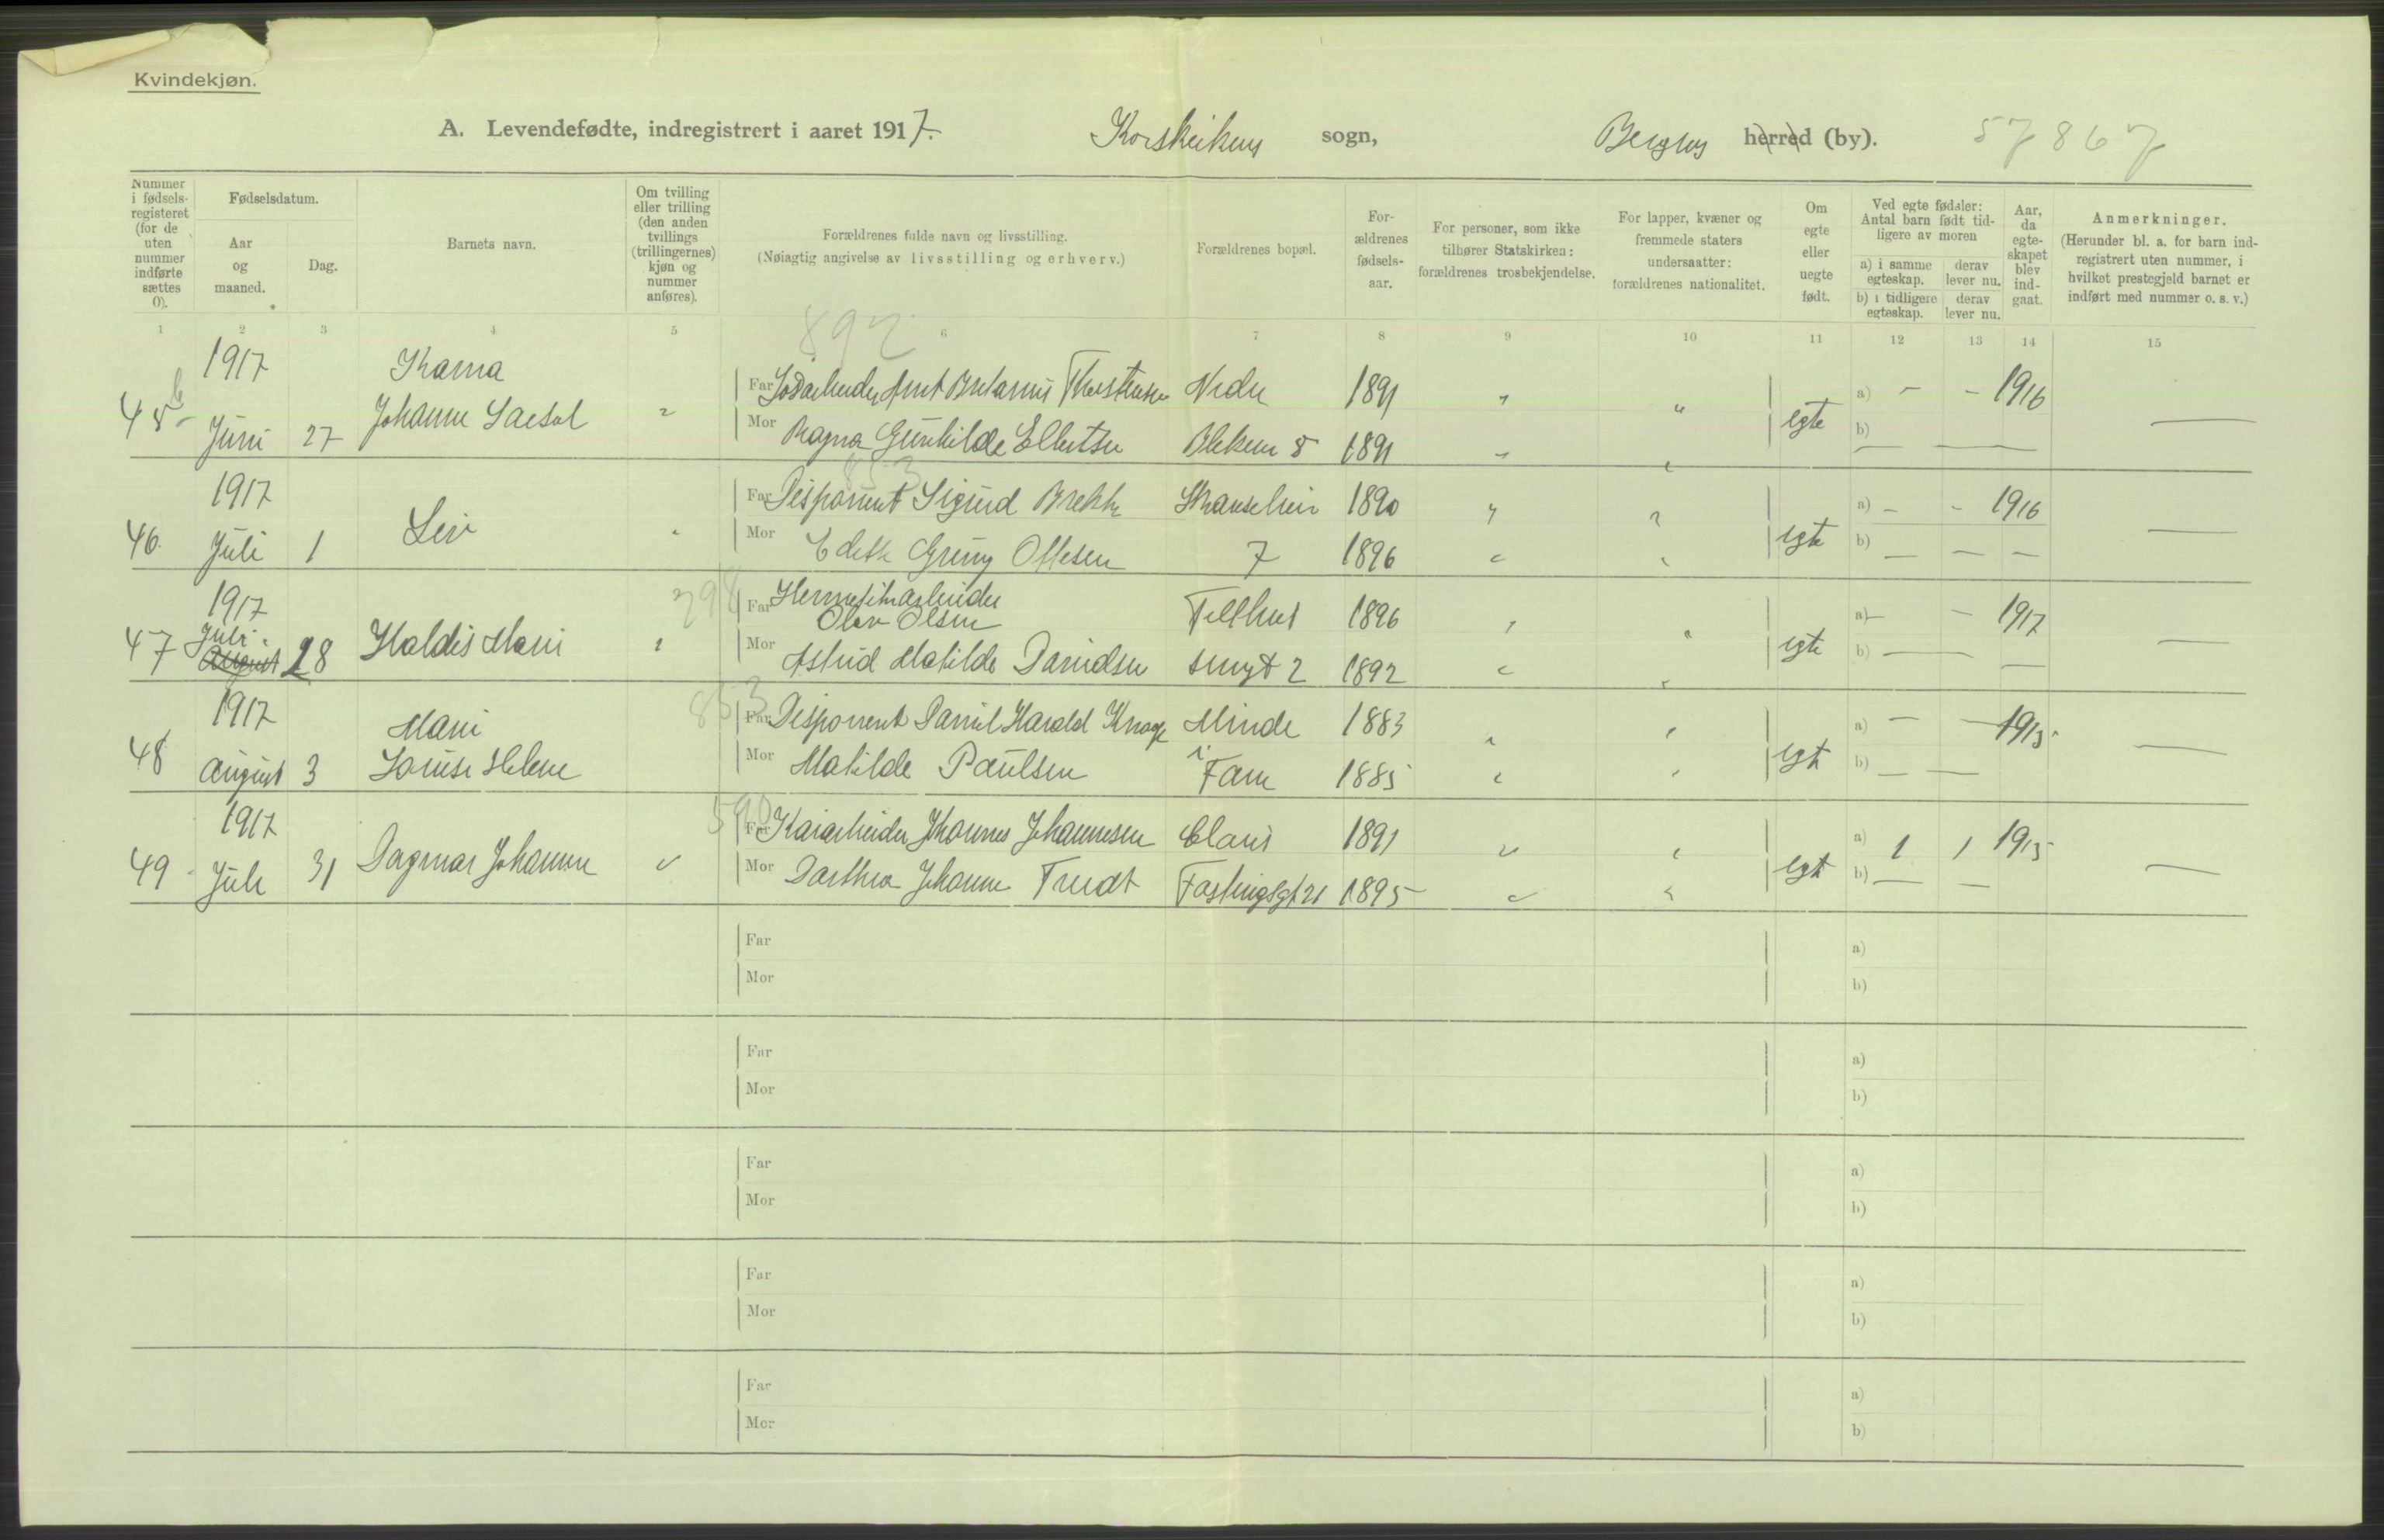 Kvindekjøn.
A. Levendefødte, indregistrert i aaret 1917. Korskirkens sogn, Bergens herred (by). 57867
Nummer i fødsels-registeret (for de uten nummer indførte sættes 0).
Fødselsdatum.
Aar og maaned.
Dag.
Barnets navn.
Om tvilling eller trilling (den anden tvillings (trillingernes) kjøn og nummer anføres).
Forældrenes fulde navn og livsstilling.
(Nøiagtig angivelse av livsstilling og erhverv.)
Forældrenes bopæl.
For-ældrenes fødsels-aar.
For personer, som ikke tilhører Statskirken: forældrenes trosbekjendelse.
For lapper, kvæner og fremmede staters undersaatter: forældrenes nationalitet.
Om egte eller uegte født.
Ved egte fødsler: Antal barn født tid-ligere av moren
a) i samme egteskap.
derav lever nu.
b) i tidligere egteskap.
derav lever nu.
Aar, da egte-skapet blev ind-gaat.
Anmerkninger.
(Herunder bl. a. for barn ind-registrert uten nummer, i hvilket prestegjeld barnet er indført med nummer o. s. v.)
1 2 3 4 5 6 7 8 9 10 11 12 13 14 15
892
1917 Karna Far Thorstensen Nedre 1891 a) - - 1916
45 b Juni 27 Johanne Mor Ragna Gunhilde Blekevn 8 1891 egte b)
853
1917 Far Disponent Sigurd Brekke 1890 a) - - 1916
46. Juli 1 Mor Edith Grung Ottesen 7 1896 egte b)
298
1917 Far Hermetikarbeider
Olav Olsen 1896 a) - - 1917
47 Juli August 28 Haldis Marie Mor Astrid Matilde Davidsen smugt 2 1892 egte b)
853
1917 Marie Far Disponent Daniel Harald Knage Minde 1883 a) - - 1913
48 August 3 Louise Helene Mor Matilde Paulsen i Fane 1885 egte b)
590
1917 Far Kaiarbeider Johannes Johannesen Claus 1891 a) 1 1 1915
49 Juli 31 Dagmar Johanne Mor Dorthea Johanne Fastingsgt 21 1895 egte b)
Far a)
Mor b)
Far a)
Mor b)
Far a)
Mor b)
Far a)
Mor b)
Far a)
Mor b)